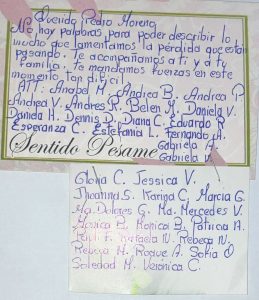 Querido Pedro Moreno
No hay palabras para poder describir lo
mucho que lamentamos la pérdida que están
pasando. Te acompañamos a ti y a tu
familia. Te mandamos fuerzas en este
momento tan difícil.
ATT: Anabel M. Andrea B. Andrea P.
Andrea V. Andres R. Belen M. Daniela V.
Daniela H. Dennis P. Diana C. Eduardo R.
Esperanza C. Estefania L. Fernando A.
Gabriela A.
Sentido Pesame
Gabriela V.
Gloria C. Jessica V.
Jhoanna S. Karina C. Marcia G.
Ma. Dolores G. Ma. Mercedes V.
Monica B. Monica B. Patricia A.
Paul F. Rafaela N. Rebeca N.
Rebeca H. Roque A. Sofia O.
Soledad M. Veronica C.